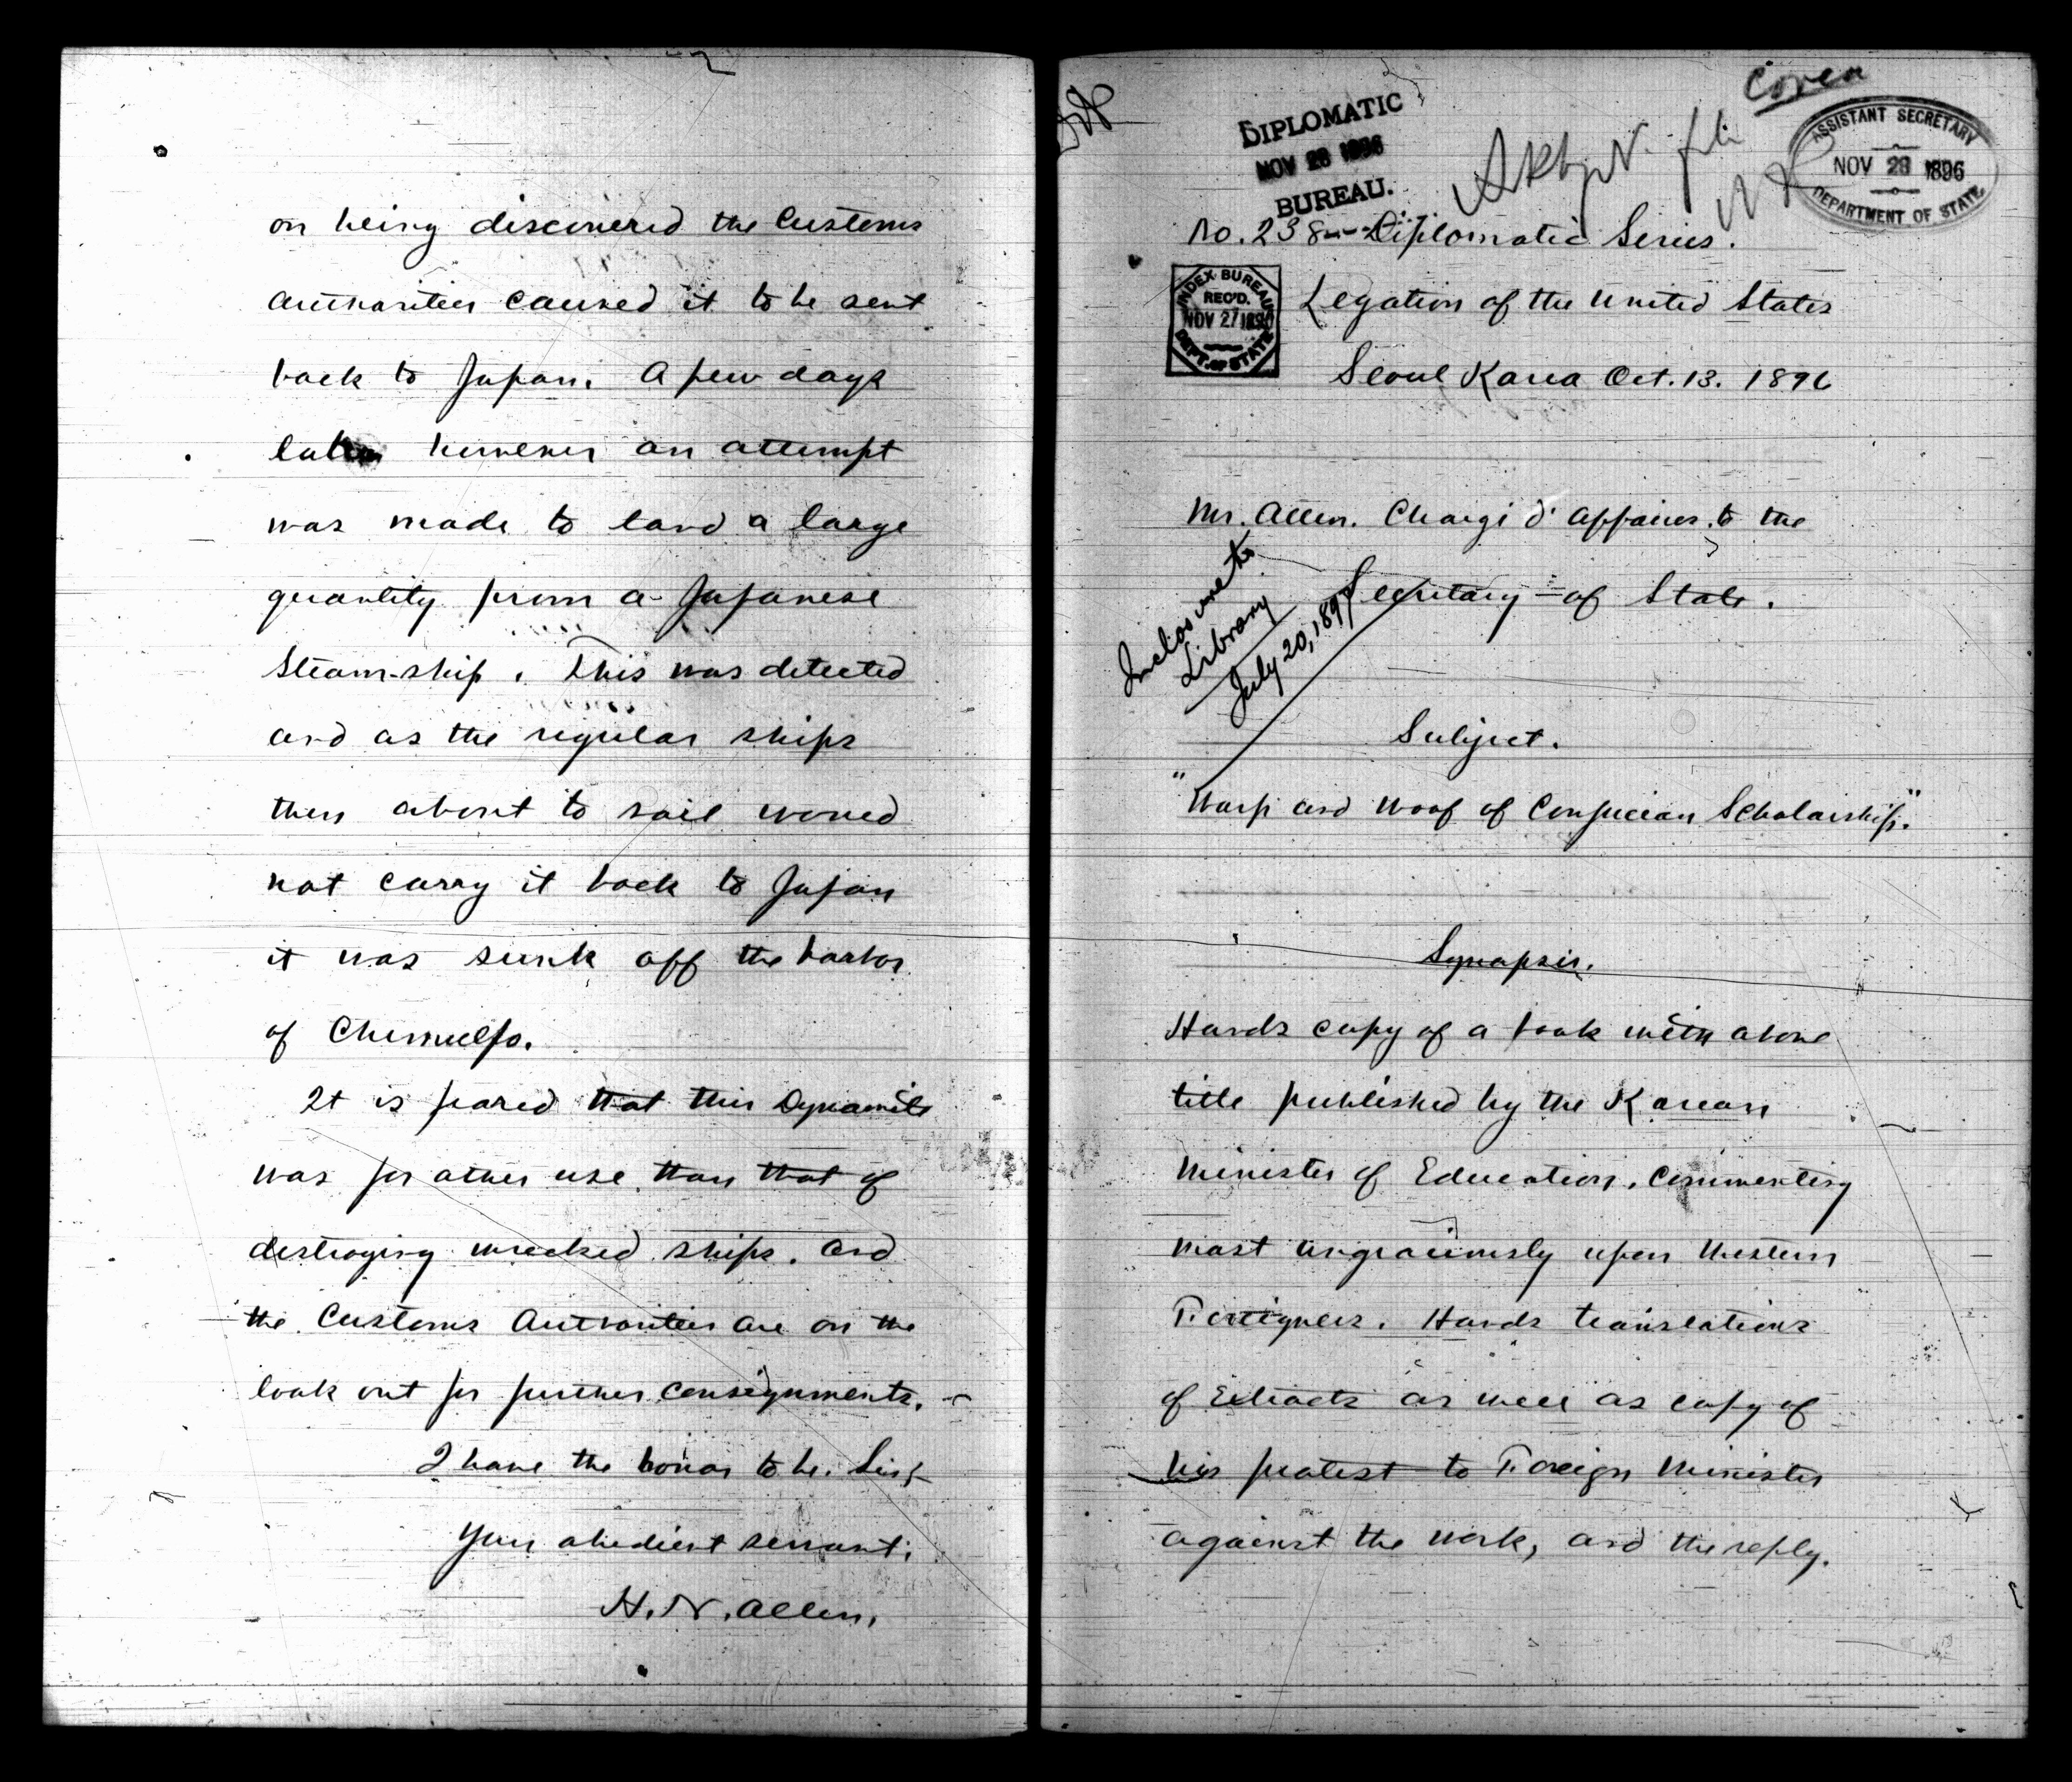 on being discovered the Customs
authorities caused it to be sent
back to Japan. A few days
later however an attempt
was made to land a large
quantity from a Japanese
Steam-ship. This was detected
and as the regular ships
then about to sail would
not carry it back to Japan
it was sunk off the harbor
of Chemulpo.
It is feared that this Dynamite
was for other use than that of
destroying wrecked ships. and
the Customs Authorities are on the
look out for further consignments.
I have the honor to be. Sir;
Your obedient servant;
H. N. Allen.
Corea
DIPLOMATIC
NOV 28 1896
BUREAU.
ASSISTANT SECRETARY
NOV 28 1896
DEPARTMENT OF STATE
No. 238 Diplomatic Series.
INDEX BUREAU
REC'D.
NOV 27 1896
DEPT. OF STATE
Legation of the United States
Seoul Korea Oct. 13. 1896
Mr. Allen. Chargé d' Affaires. to the
Secretary of State.
Inclosure to
Library
July 20, 1897
Subject.
"Warp and Woof of Confucian Scholarship."
Synopsis.
Hands copy of a book with above
title published by the Korean
Minister of Education. Commenting
most ungraciously upon Western
Foreigners. Hands translations
of Extracts as well as copy of
his protest to Foreign Minister
against the work, and the reply.